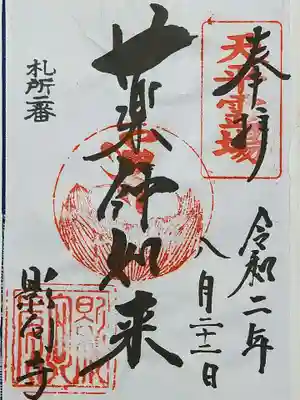 奉拝
天平霊場
令和二年
八月二十二日
薬師如来
札所一番
影向寺